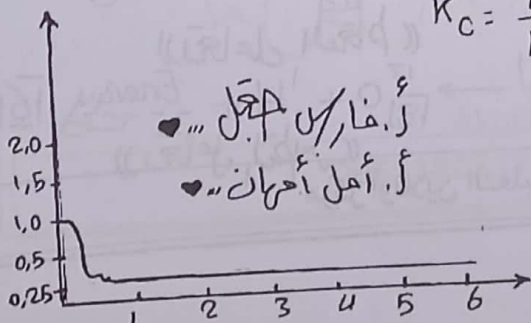 K_C =
أ. فارس جقل ... ♥
أ. أمل أمهان ... ♥
2,0
1,5
1,0
0,5
0,25
1 2 3 4 5 6